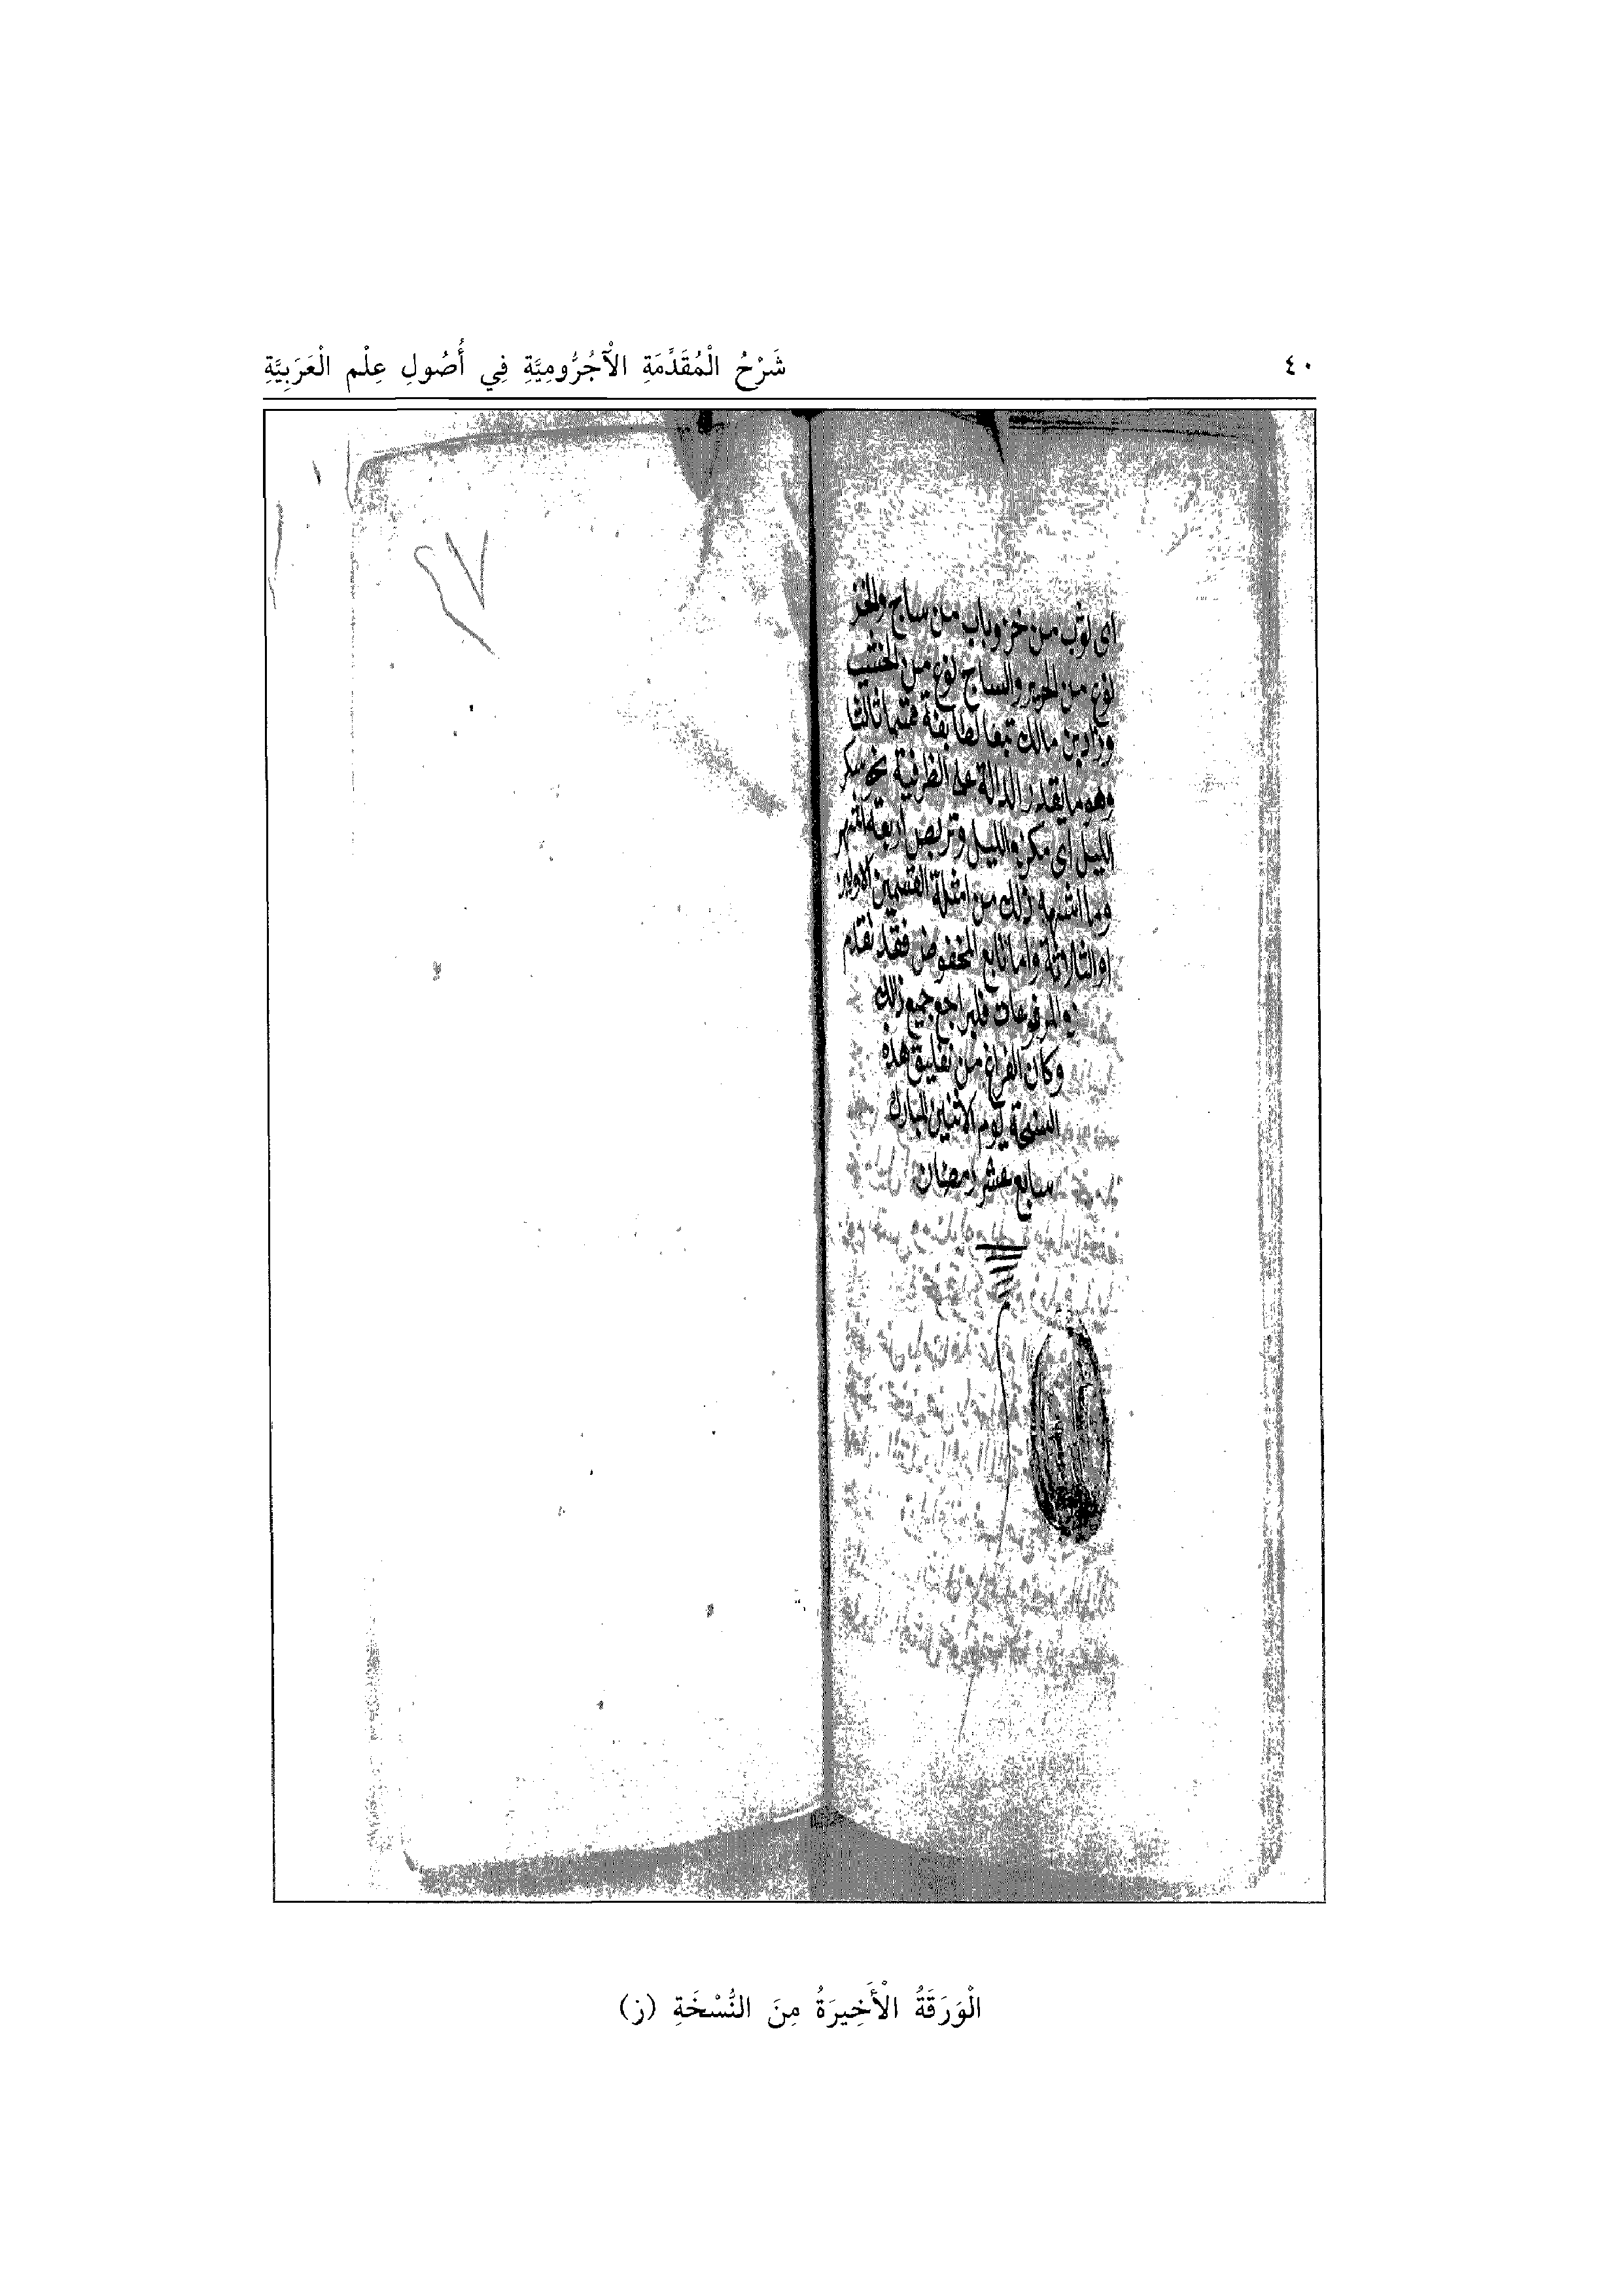 ٤٠
شَرْحُ الْمُقَدَّمَةِ الْآجُرُّومِيَّةِ فِي أُصُولِ عِلْمِ الْعَرَبِيَّةِ
اى ثوب من خز وباب من ساج والخز
نوع من الحرير والساج نوع من الخشب
وزاد بن مالك تبعا لطايفة قسما ثالثا
وهو ما يقدر الدالة على الظرفية نحو مكر
الليل اى مكر الليل وتربص اربعة اشهر
وما اشبه ذلك من امثلة القسمين الاولين
او الثلاثة واما تابع المخفوض فقد تقدم
المرفوعات فليراجع جميع ذلك
وكان الفراغ من تعليق هذه
النسخة يوم الاثنين المبارك
سابع عشر رمضان
الْوَرَقَةُ الْأَخِيرَةُ مِنَ النُّسْخَةِ (ز)